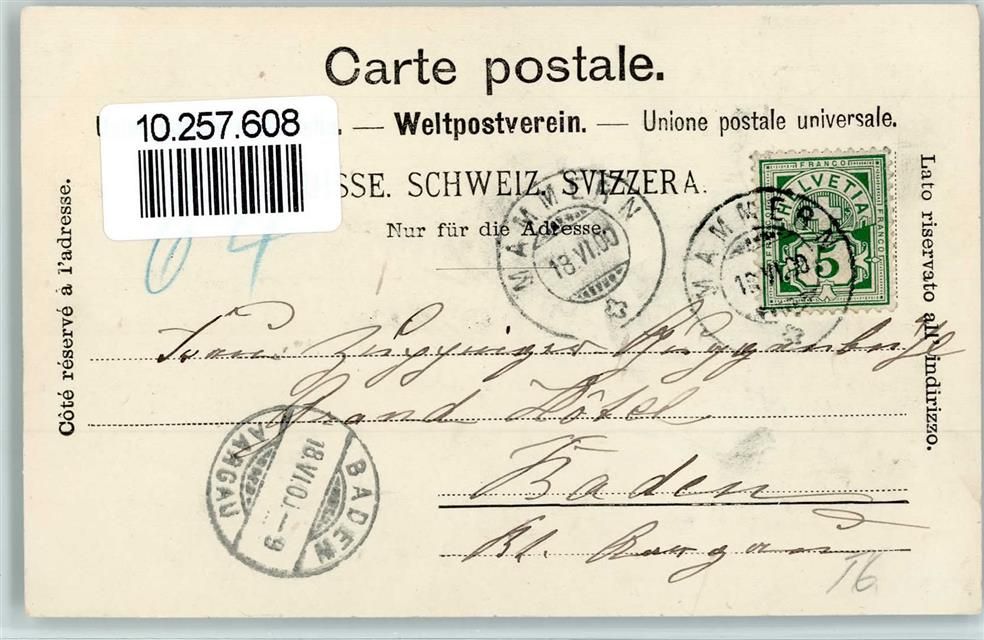 Carte postale.
10.257.608
— Weltpostverein. — Unione postale universale.
SSE. SCHWEIZ. SVIZZERA.
Nur für die Adresse.
Côté réservé à l'adresse.
Lato riservato all'indirizzo.
FRANCO
HELVETIA
FRANCO FRANCO
5
MAMMERN
18.VI.00
MAMMERN
18.VI.00
64
Frau
Grand Hôtel
Baden
Kt. Aargau
BADEN
18.VI.00.-9
AARGAU
T6